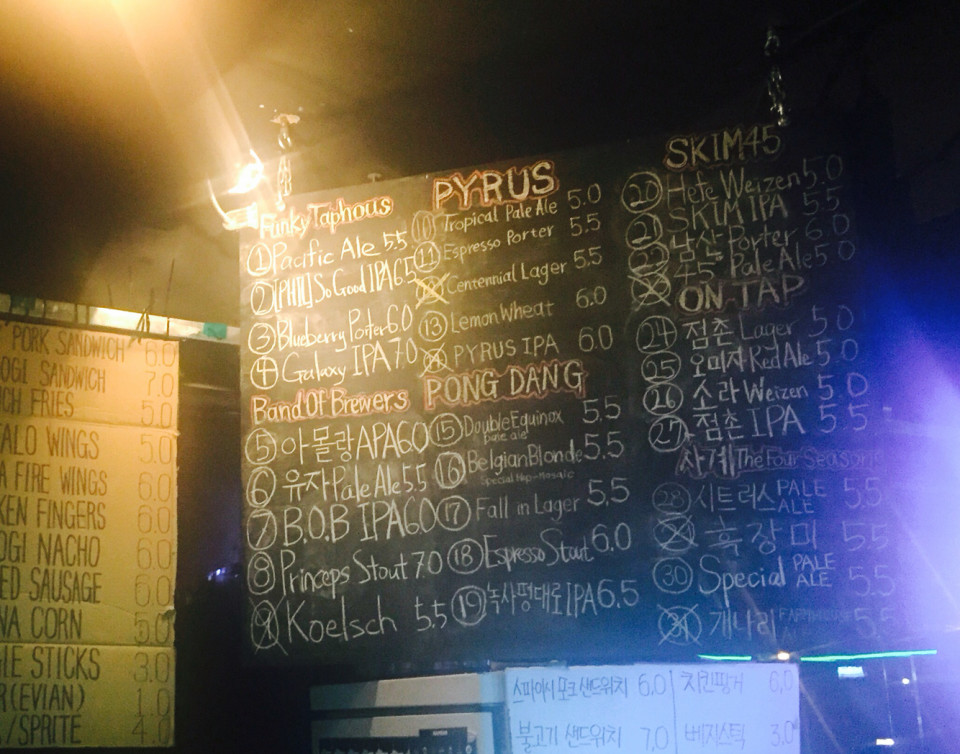 PORK SANDWICH 6.0
OGI SANDWICH 7.0
CH FRIES 5.0
ALO WINGS 5.0
A FIRE WINGS 6.0
KEN FINGERS 6.0
OGI NACHO 6.0
ED SAUSAGE 6.0
NA CORN 5.0
IE STICKS 3.0
R(EVIAN) 1.0
/SPRITE 4.0
Funky Taphous
① Pacific Ale 5.5
② [PHIL] So Good IPA 6.5
③ Blueberry Porter 6.0
④ Galaxy IPA 7.0
Band Of Brewers
⑤ 아몰랑 APA 6.0
⑥ 유자 Pale Ale 5.5
⑦ B.O.B IPA 6.0
⑧ Princeps Stout 7.0
⑨ Koelsch 5.5
PYRUS
⑩ Tropical Pale Ale 5.0
⑪ Espresso Porter 5.5
Centennial Lager 5.5
⑬ Lemon Wheat 6.0
PYRUS IPA 6.0
PONG DANG
⑮ Double Equinox 5.5
pane ale
⑯ Belgian Blonde 5.5
Special Hop-Mosaic
⑰ Fall in Lager 5.5
⑱ Espresso Stout 6.0
⑲ 녹사평대로 IPA 6.5
SKIM45
⑳ Hefe Weizen 5.0
㉑ SKIM IPA 5.5
㉒ 남산 Porter 6.0
45° Pale Ale 5.0
ON TAP
㉔ 점촌 Lager 5.0
㉕ 오미자 Red Ale 5.0
㉖ 소라 Weizen 5.0
㉗ 점촌 IPA 5.5
사계 The Four Seasons
㉘ 시트러스 PALE ALE 5.5
흑장미 5.5
㉚ Special PALE ALE 5.5
㉛ 개나리 5.5
스파이시 포크 샌드위치 6.0 치킨핑거 6.0
불고기 샌드위치 7.0 베지스틱 3.0